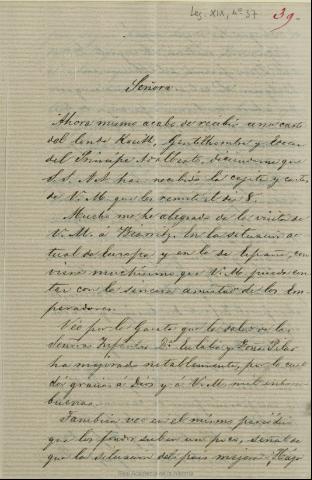 Leg. XIX, nº 37
39.
Señora.
Ahora mismo acabo de recibir una carta
del Conde Gentilhombre y
del Principe Adalberto, diciendome que
S.S. A.A. han recibido la cajita y cartas
de V.M. que les remiti el dia 8.
Mucho me he alegrado de la visita de
V.M. á Biarritz. En la situacion ac
tual de Europa y en la de España, con
viene muchisimo que V.M. pueda con
tar con la sincera amistad de los Em
peradores.
Veo por la Gaceta que la salud de las
Señoras Infantas Dª Eulalia y Doña Pilar
ha mejorado notablemente, por lo cual
doy gracias á Dios y á V.M. mil enhora
buenas.
Tambien veo en el mismo periódico
que los fondos suben un poco, señal de
que la situacion del pais mejora. Hága
Real Academia de la Historia